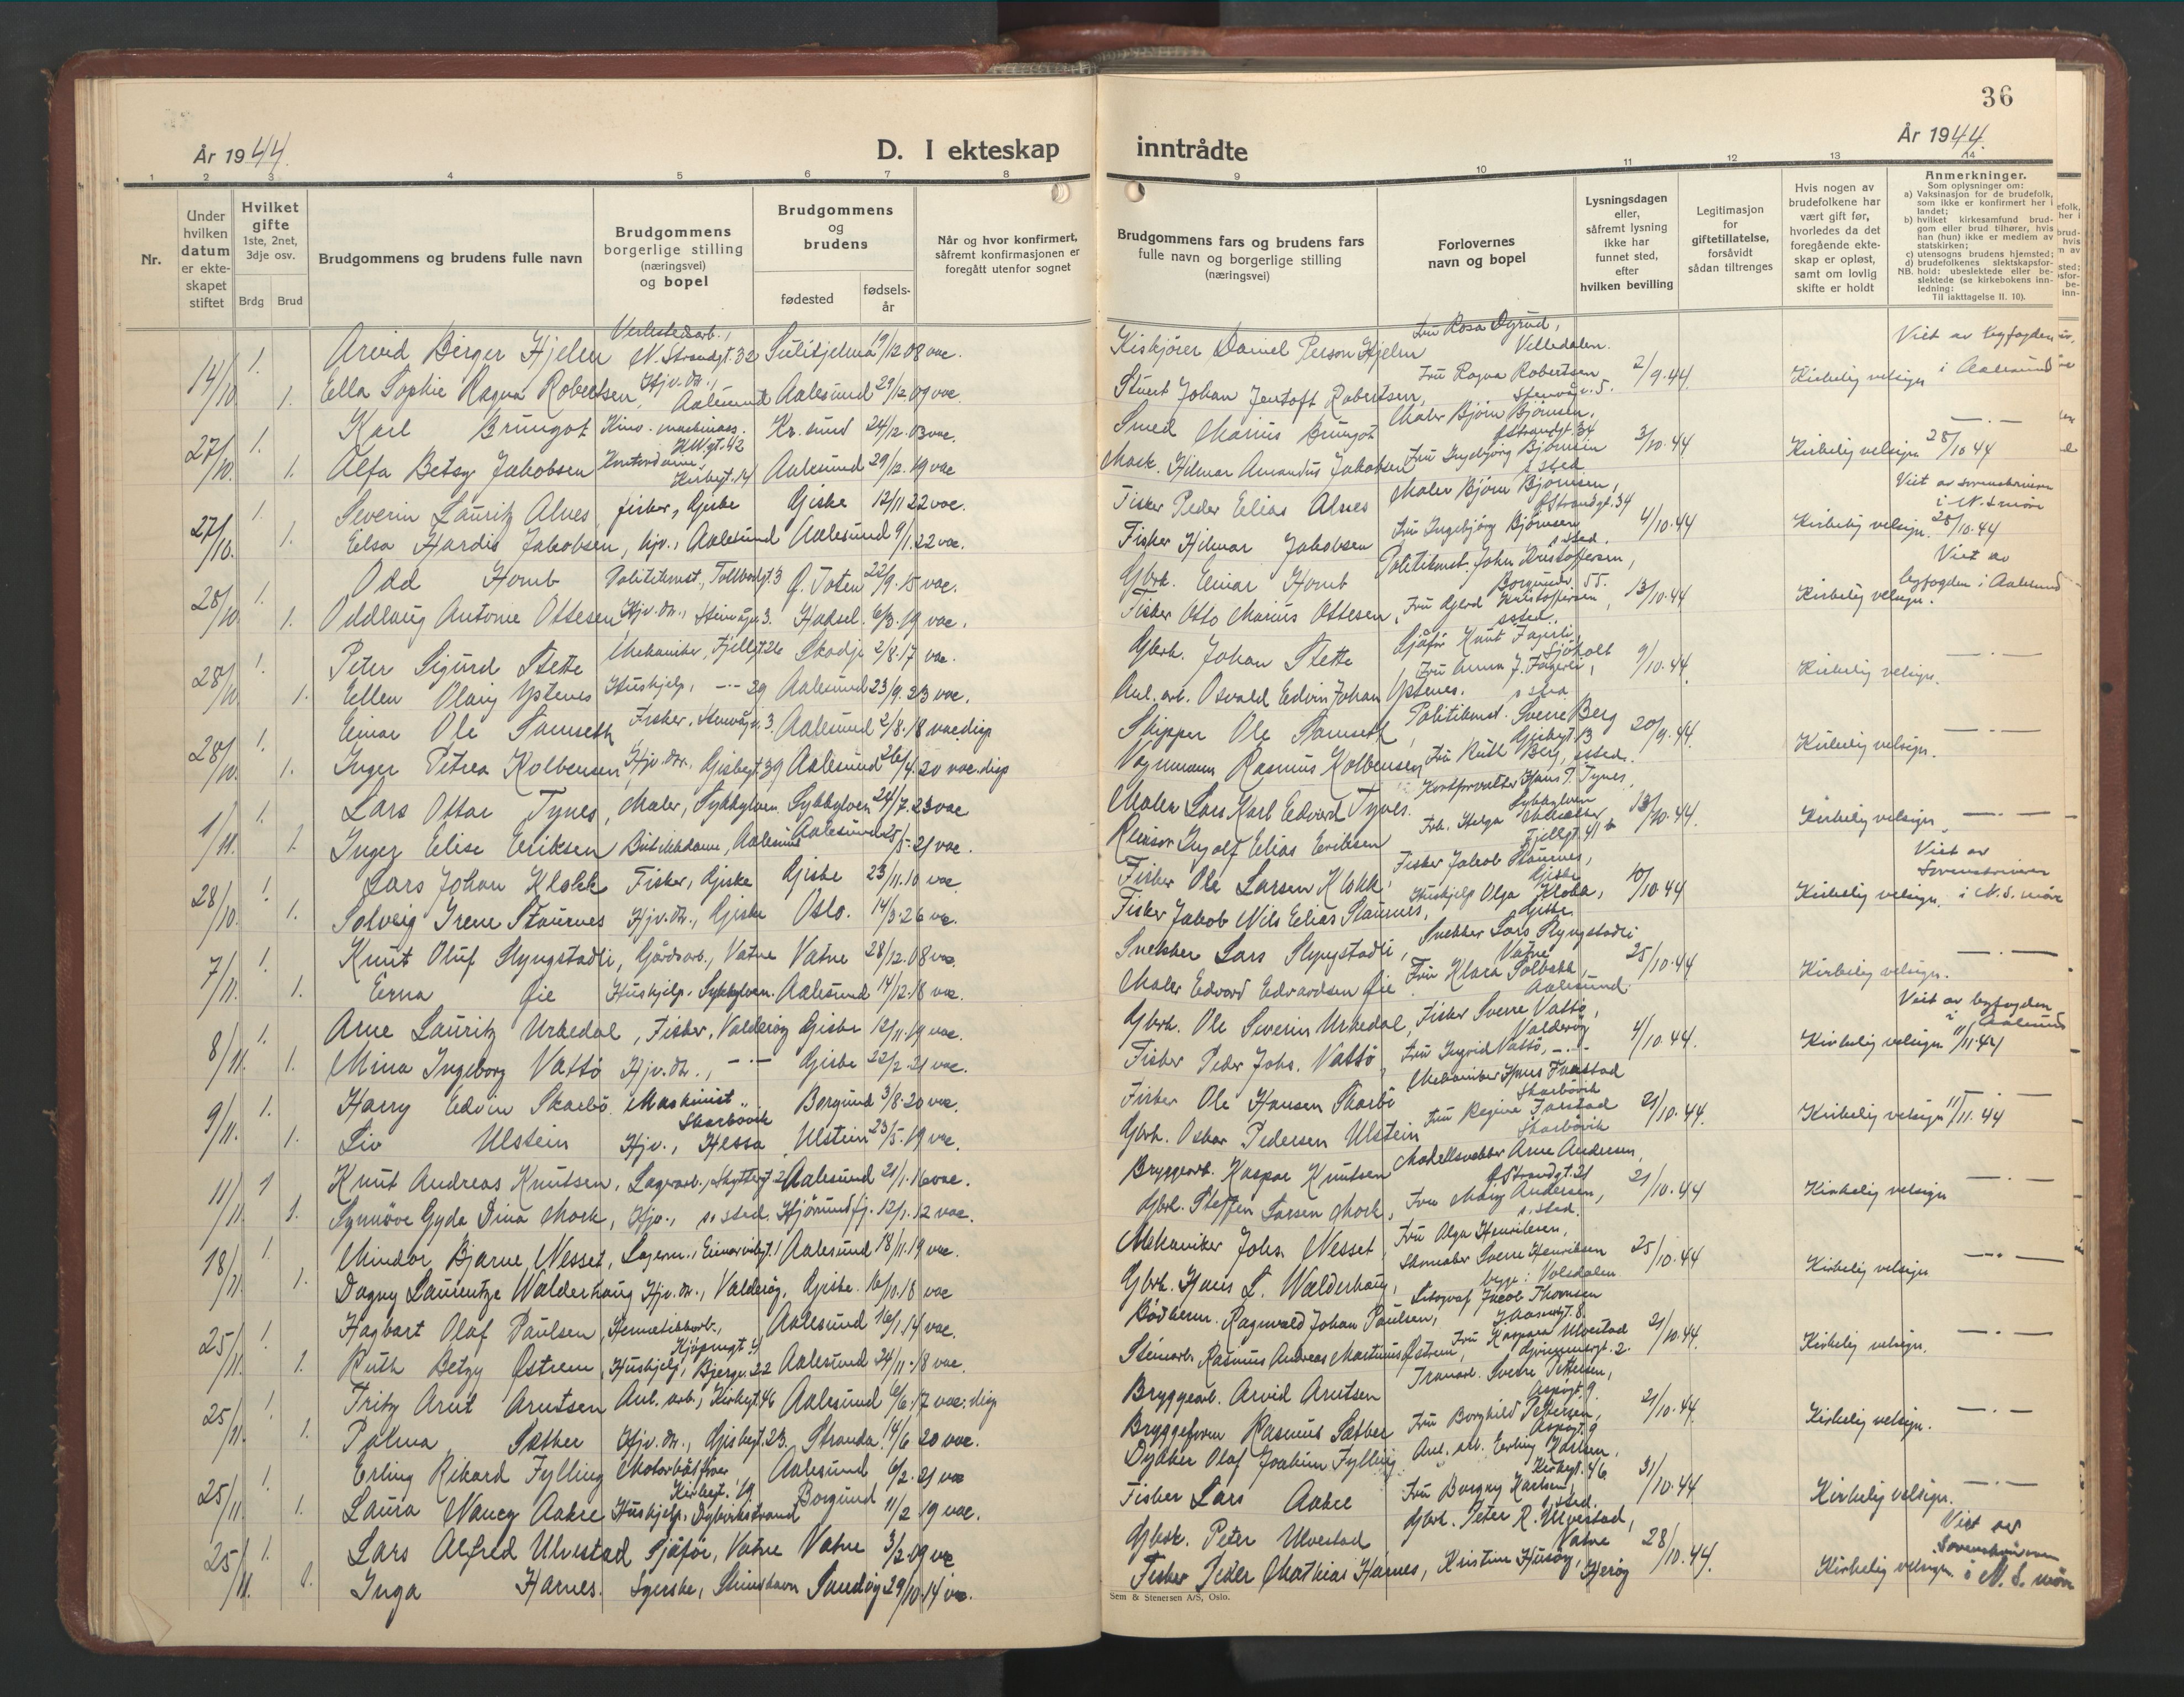 36
År 1944.
År 1944.
D. I ekteskap inntrådte
1 2 3 4 5 6 7 8 9 10 11 12 13 14
Nr.
Under hvilken datum er ekteskapet stiftet
Hvilket gifte 1ste, 2net, 3dje osv.
Brdg Brud
Brudgommens og brudens fulle navn
Brudgommens borgerlige stilling (næringsvei) og bopel
Brudgommens og brudens
fødested
fødselsår
Når og hvor konfirmert, såfremt konfirmasjonen er foregått utenfor sognet
Brudgommens fars og brudens fars fulle navn og borgerlige stilling (næringsvei)
Forlovernes navn og bopel
Lysningsdagen eller, såfremt lysning ikke har funnet sted, efter hvilken bevilling
Legitimasjon for giftetillatelse, forsåvidt sådan tiltrenges
Hvis nogen av brudefolkene har vært gift før, hvorledes da det foregående ekteskap er opløst, samt om lovlig skifte er holdt
Anmerkninger.
Som oplysninger om:
a) Vaksinasjon for de brudefolk, som ikke er konfirmert her i landet;
b) hvilket kirkesamfund brudgom eller brud tilhører, hvis han (hun) ikke er medlem av statskirken;
c) utensogns brudens hjemsted;
d) brudefolkenes slektskapsforhold: ubeslektede eller beslektede (se kirkebokens innledning:
NB. Til iakttagelse II. 10).
14/10 1. Arvid Birger Hjelm N. Strandgt. 32 Sulitjelma 19/12 08 vac. Daniel Person Hjelm Fru Rosa Villedalen.
1. Ella Sophie Ragna Robertsen, Hjv. dr., Aalesund Aalesund 29/12.09 vac. Johan Jentoft Robertsen, Fru Ragna Robertsen 2/9.44 Kirkelig velsign. Viet av byfogden i Aalesund
27/10. 1. Karl Brungot Kino-maskinass. Kr. sund 24/12.03 vac. Smed Marius Brungot Maler Bjørn Bjørnsen, Ø Strandgt. 34
1. Alfa Betsy Jakobsen Kontordame, Kirkegt. 14 Aalesund 29/12.19 vac Mask. Hilmar Amandus Jakobsen Fru Ingebjørg Bjørnsen s sted 3/10.44 Kirkelig velsign. 28/10 44 —.—
27/10. 1. Severin Lauritz Alnes, fisker, Giske Giske 12/11 22 vac. Fisker Peder Elias Alnes Maler Bjørn Bjørnsen, Ø Strandgt. 34
1. Elsa Hardis Jakobsen, hjv., Aalesund Aalesund 9/1.22 vac. Fisker Hilmar Jakobsen Fru Ingebjørg Bjørnsen s sted. 4/10.44 Kirkelig velsign. 28/10.44 Viet av sorenskriveren i N. S. møre
28/10. 1. Odd Homb Politikonst., Tollbodgt. 3 Ø. Toten 22/9.15 vac. Gbrk. Einar Homb Politikonst. John Kristoffersen, Borgundv. 55.
1. Oddlaug Antonie Ottesen Hjv. dr., Steinvågv. 3. Hadsel. 6/3.19 vac. Fisker Otto Marius Ottesen, Fru Kristoffersen, s sted. 13/10.44 Kirkelig velsign. Viet av byfogden i Aalesund
28/10. 1. Peter Sigurd Stette Mekaniker, Fjellgt 26 Skodje 2/8.17 vac. Gbrk. Johan Stette Sjåfør Knut Fagerli, Sjøholt
1. Ellen Olaug Ystenes Hushjelp, —.— 29 Aalesund 23/9.23 vac. Anl. arb. Osvald Edvin Johan Ystenes. Fru Anna J. Fagerli, s sted 9/10.44. Kirkelig velsign. —.—
28/10. 1. Einar Ole Samseth Fisker, Steinvågv. 3. Aalesund 2/8.18 vac. disp Skipper Ole Samseth, Politikonst. Sverre Berg
1. Inger Petrea Kolbensen Hjv. dr., 39 Aalesund 26/4.20 vac. disp Vognmann Rasmus Kolbensen Fru Ruth Berg, s sted. 20/9.44. Kirkelig velsign. —.—
1/11. 1. Lars Ottar Tynes, Maler, Sykkylven. Sykkylven 24/7.23 vac Maler Lars Karl Edvard Tynes. Hans P. Tynes, Sykkylven
1. Inger Elise Eriksen Butikkdame, Aalesund Aalesund 25/5.21 vac. Ingolf Elias Eriksen Frk. Helga Fjellgt. 41 b 13/10.44. Kirkelig velsign. —.—
28/10. 1. Lars Johan Klokk Fisker, Giske Giske 23/11.10 vac. Fisker Ole Larsen Klokk, Fisker Jakob Staurnes, Giske
1. Solveig Irene Staurnes Hjv. dr., Giske Oslo. 14/3.26 vac. Fisker Jakob Nils Elias Staurnes, Hushjelp Olga Klokk, Giske 10/10.44 Kirkelig velsign. Viet av Sorenskriveren i N. S. møre
7/11. 1. Knut Oluf Slyngstadli, Gårdsarb., Vatne Vatne 28/12.08 vac. Snekker Lars Slyngstadli, Snekker Lars Slyngstadli Vatne
1. Erna Øie Hushjelp, Sykkylven. Aalesund 14/12.18 vac. Maler Edvard Edvardsen Øie Fru Klara Solbakk, Aalesund 25/10.44 Kirkelig velsign. —.—
8/11. 1. Arne Lauritz Urkedal, Fisker, Valderøy Giske 12/11.19 vac. Gbrk. Ole Severin Urkedal, Fisker Sverre Vattø, Valderøy
1. Mina Ingeborg Vattø Hjv. dr., —.— Giske 22/2.21 vac. Fisker Peder Johs. Vattø, Fru Ingrid Vattø, —.— 4/10.44. Kirkelig velsign 11/11.44 Viet av byfogden i Aalesund
9/11. 1. Harry Edvin Skarbø. Maskinist Skarbøvik Borgund 3/8.20 vac. Fisker Ole Hansen Skarbø Mekaniker Hans Skarbøvik
1. Liv Ulstein Hjv., Hessa Ulstein 23/5.19 vac. Gbrk. Oskar Pedersen Ulstein Fru Regine Skarbøvik 21/10.44. Kirkelig velsign 11/11.44 —.—
11/11. 1 Knut Andreas Knutsen, Lagerarb., Aalesund 21/1.16 vac. Bryggearb. Kaspar Knutsen Modellsnekker Arne Andersen, Ø Strandgt. 21
1. Synnøve Gyda Dina Mork, Hjv., s. sted. Hjørundfj. 12/1.12 vac. Gbrk. Steffen Larsen Mork, Fru Mary Andersen, s. sted. 21/10.44 Kirkelig velsign —.—
18/11. 1. Mindor Bjarne Nesset, Lagerm., Aalesund 18/11.19 vac. Mekaniker Johs. Nesset, Fru Olga Henriksen,
1. Dagny Laurentze Walderhaug Hjv. dr., Valderøy, Giske. 16/10.18 vac Gbrk. Hans L. Walderhaug, Skomaker Sverre Henriksen begge: Volsdalen 25/10.44 Kirkelig velsign —.—
25/11. 1. Hagbart Olaf Paulsen, Hermetikkarb., Aalesund 16/1.14 vac. Ragnvald Johan Paulsen, Jacob Thomsen
1. Ruth Betzy Østrem, Hushjelp, Bjergv. 22 Aalesund 24/11.18 vac. Steinarb. Rasmus Andreas Martinius Østrem, Fru Kaspara Ulvestad 21/10.44. Kirkelig velsign. —.—
25/11. 1. Fritz Arnt Arntsen Anl. arb., Kirkegt. 46 Aalesund 6/6.17 vac. disp Bryggearb. Arvid Arntsen Tranarb. Sverre Pettersen, Aspøgt. 9.
1. Palma Sæther Hjv. dr., 23. Stranda. 14/6 20 vac. Bryggeform Rasmus Sæther Fru Borghild Pettersen, Aspøgt. 9 21/10.44. Kirkelig velsign. —.—
25/11. 1. Erling Rikard Fylling Kirkegt. 19 Aalesund 6/2.21 vac Dykker Olaf Joakim Fylling Anl. arb. Erling Karlsen, Kirkegt. 46
1. Laura Nancy Aakre Hushjelp, Borgund 11/2 19 vac. Fisker Lars Aakre Fru Borgny Karlsen, s sted. 31/10.44 Kirkelig velsign. —.—
25/11. 1. Lars Alfred Ulvestad Sjåfør, Vatne Vatne 3/2.09 vac Gbrk. Peter Ulvestad Gbrk. Peter R. Ulvestad, Vatne
1. Inga Harnes. Syerske, Sandøy 29/10.14 vac. Fisker Peder Mathias Harnes, Kristine Husøy, Herøy 28/10.44. Kirkelig velsign. Viet av Sorenskriveren i N. S. møre
Sem & Stenersen A/S, Oslo.